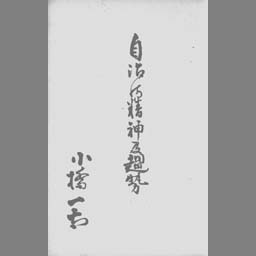 自治の精神及趨勢
小橋一太